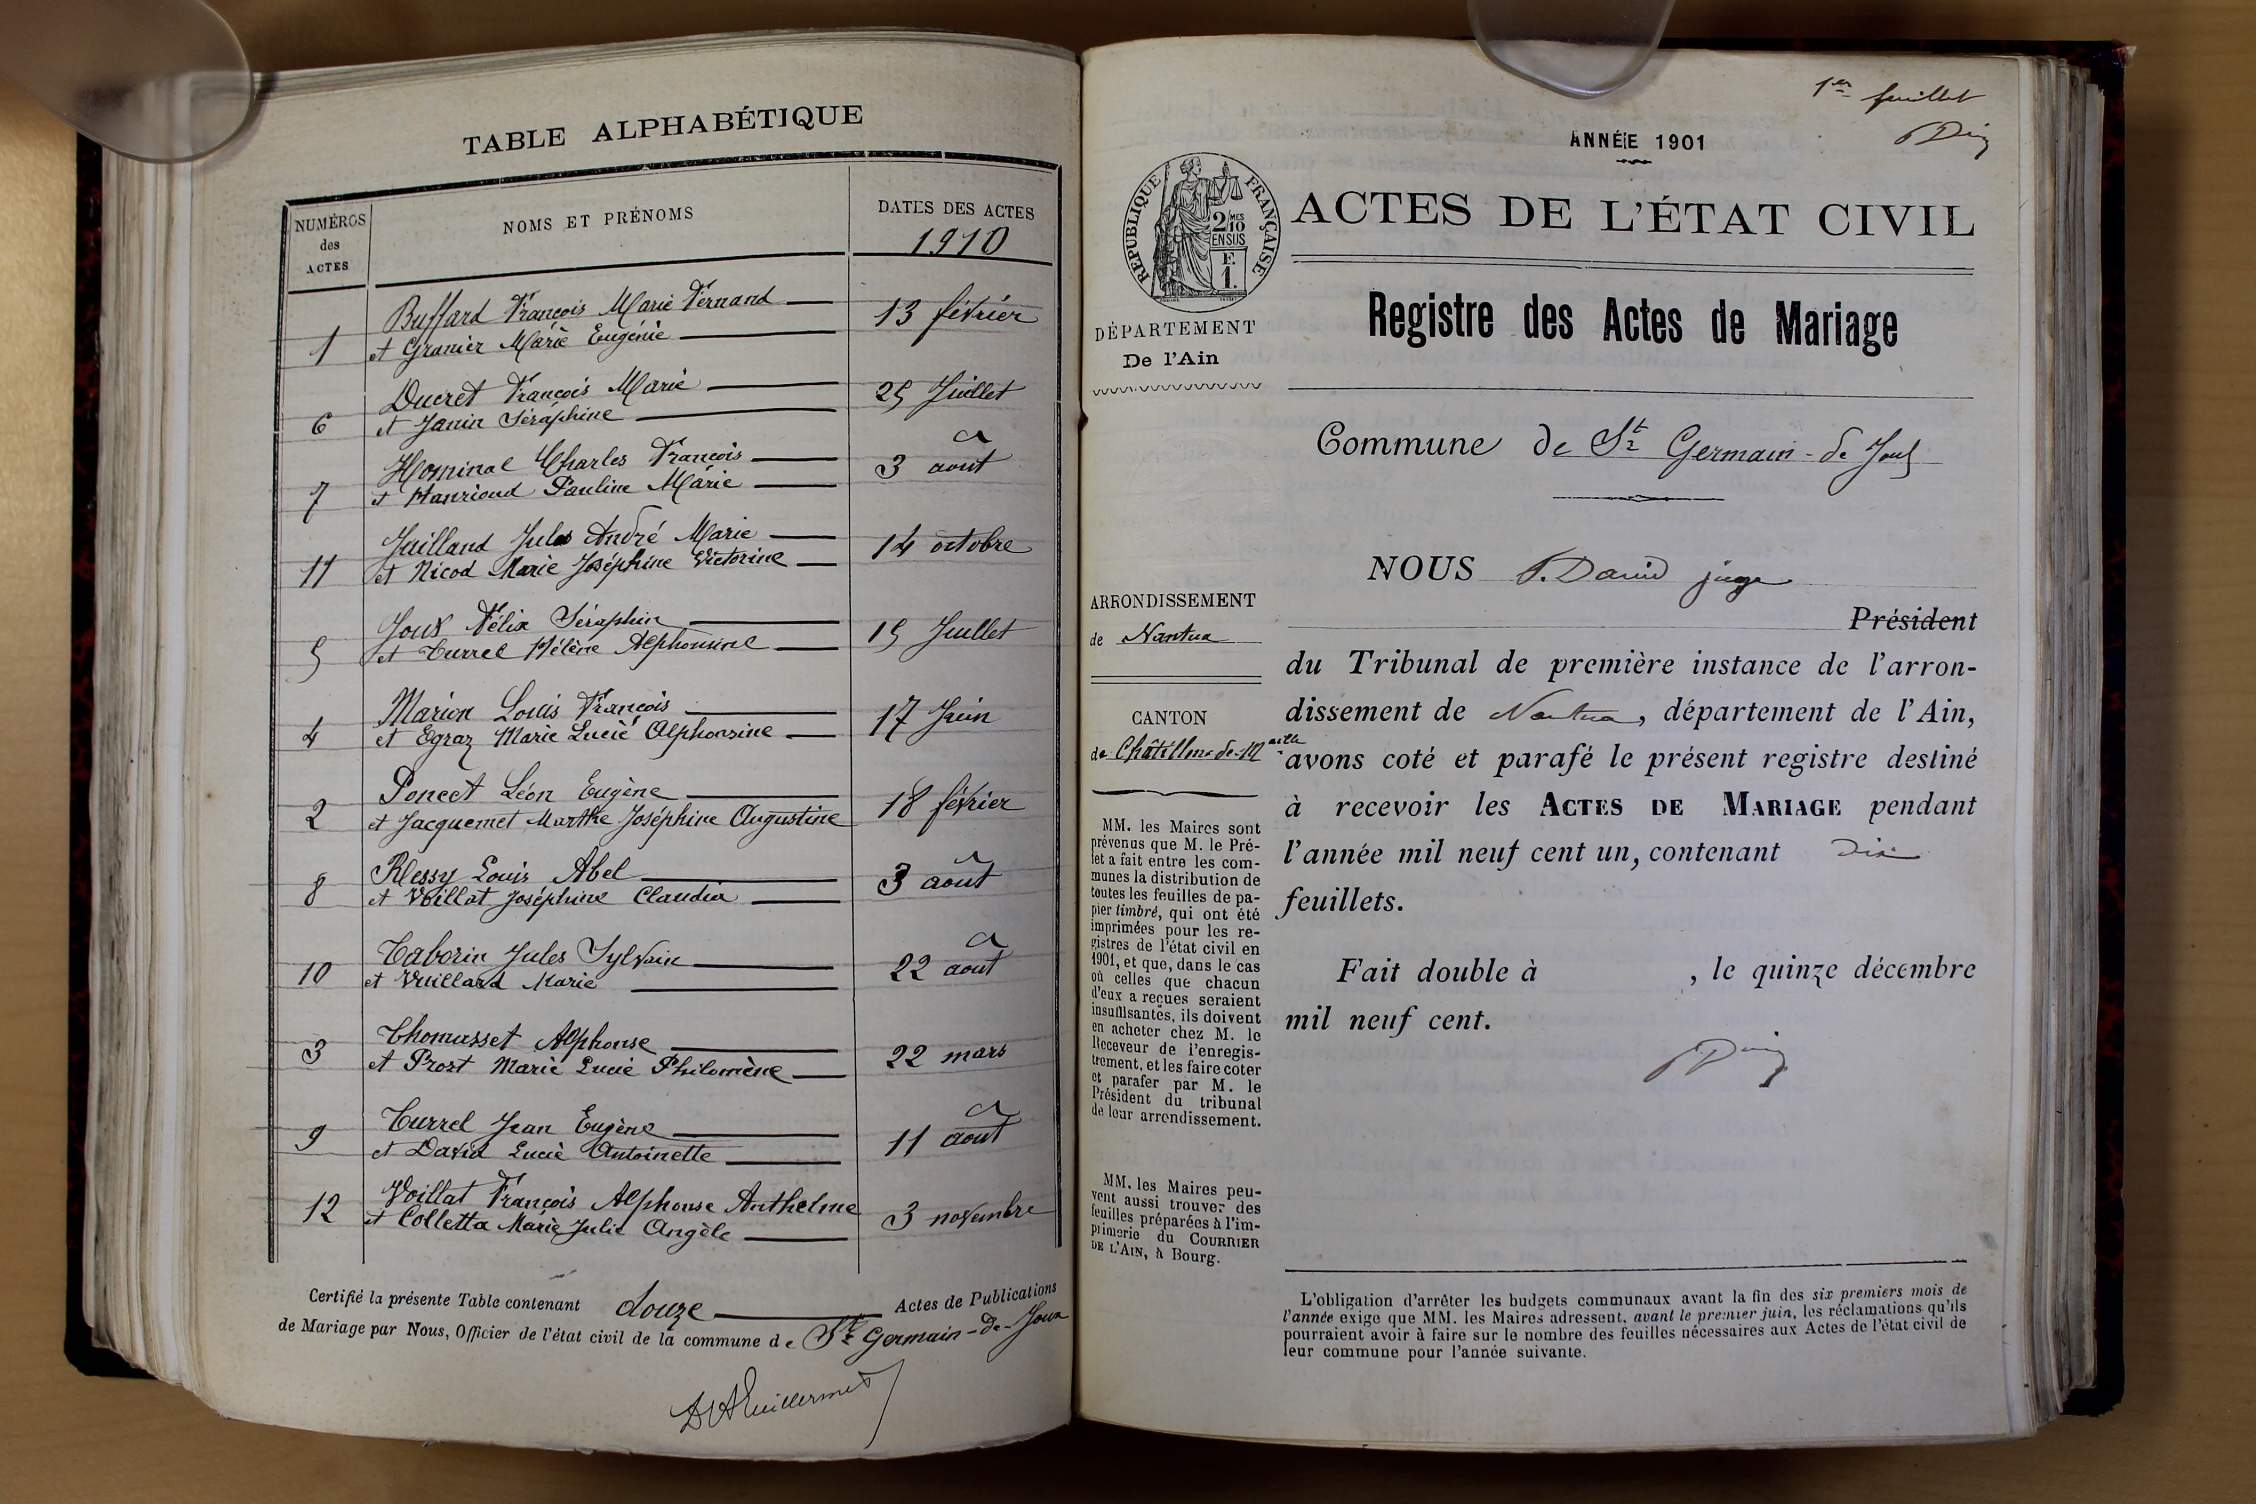 TABLE ALPHABÉTIQUE
NUMÉROS des ACTES
NOMS ET PRÉNOMS
DATES DES ACTES
1910
1 Buffard François Marie Fernand 13 février
et Granier Marie Eugénie
6 Ducret François Marie 25 Juillet
et Janin Séraphine
7 Hominal Charles François 3 août
et Hanrioud Pauline Marie
11 Juilland Jules André Marie 14 octobre
et Nicod Marie Joséphine Victorine
5 Joux Félix Séraphin 15 Juillet
et Turrel Hélène Alphonsine
4 Marion Louis François 17 Juin
et Egraz Marie Lucie Alphonsine
2 Poncet Léon Eugène 18 février
et Jacquemet Marthe Joséphine Augustine
8 Ressy Louis Abel 3 août
et Voillat Joséphine Claudia
10 Taborin Jules Sylvain 22 août
et Vuillard Marie
3 Thomasset Alphonse 22 mars
et Prost Marie Lucie Philomène
9 Turrel Jean Eugène 11 août
et David Lucie Antoinette
12 Voillat François Alphonse Anthelme 3 novembre
et Colletta Marie Julie Angèle
Certifié la présente Table contenant douze Actes de Publications
de Mariage par Nous, Officier de l'état civil de la commune de St Germain-de-Joux
1er feuillet
ANNÉE 1901
RÉPUBLIQUE FRANÇAISE
2/10 MES
EN SUS
E.
1.
ACTES DE L'ÉTAT CIVIL
Registre des Actes de Mariage
DÉPARTEMENT
De l'Ain
Commune de St Germain-de-Joux
NOUS P. David juge
Président
ARRONDISSEMENT
de Nantua
CANTON
de Châtillon-de-Mlle
du Tribunal de première instance de l'arron-
dissement de Nantua, département de l'Ain,
avons coté et parafé le présent registre destiné
à recevoir les ACTES DE MARIAGE pendant
l'année mil neuf cent un, contenant Dix
feuillets.
Fait double à , le quinze décembre
mil neuf cent.
MM. les Maires sont
prévenus que M. le Pré-
fet a fait entre les com-
munes la distribution de
toutes les feuilles de pa-
pier timbré, qui ont été
imprimées pour les re-
gistres de l'état civil en
1901, et que, dans le cas
où celles que chacun
d'eux a reçues seraient
insuffisantes, ils doivent
en acheter chez M. le
Receveur de l'enregis-
trement, et les faire coter
et parafer par M. le
Président du tribunal
de leur arrondissement.
MM. les Maires peu-
vent aussi trouver des
feuilles préparées à l'im-
primerie du COURRIER
DE L'AIN, à Bourg.
L'obligation d'arrêter les budgets communaux avant la fin des six premiers mois de
l'année exige que MM. les Maires adressent, avant le premier juin, les réclamations qu'ils
pourraient avoir à faire sur le nombre des feuilles nécessaires aux Actes de l'état civil de
leur commune pour l'année suivante.